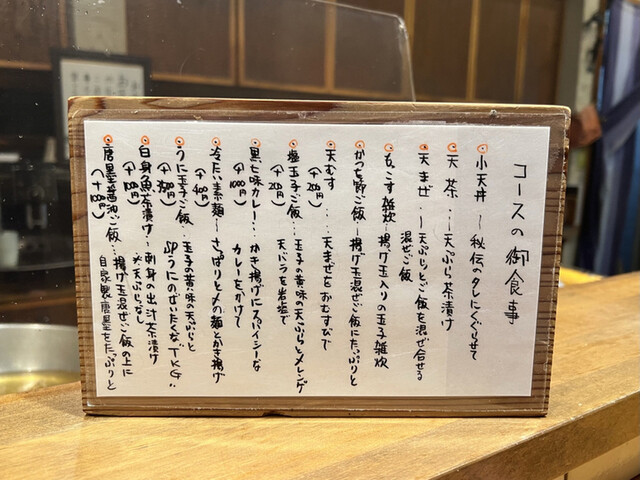 コースの御食事
小天丼 〜 秘伝のタレにくぐらせて
天茶 … 天ぷら茶漬け
天まぜ 〜 天ぷらとご飯を混ぜ合せる
混ぜご飯
もこす雑炊…揚げ玉入りの玉子雑炊
かつぶ節ご飯…揚げ玉混ぜご飯にたっぷりと
天むす … 天まぜをおむすびで
(+200円)
塩玉子ご飯…玉子の黄味の天ぷらとメレンゲ
(+200円) 天バラを岩塩で
黒七味カレー…かき揚げにスパイシーな
(+1000円) カレーをかけて
冷たい素麺〜さっぱりと〆の麺とかき揚げ
(+400円)
うに玉子ご飯…玉子の黄味の天ぷらと
生うにのぜいたくな"TKG"!!
白身魚茶漬け…刺身の出汁茶漬け
※天ぷらなし
唐墨醤油ご飯…揚げ玉混ぜご飯の上に
自家製唐墨をたっぷりと